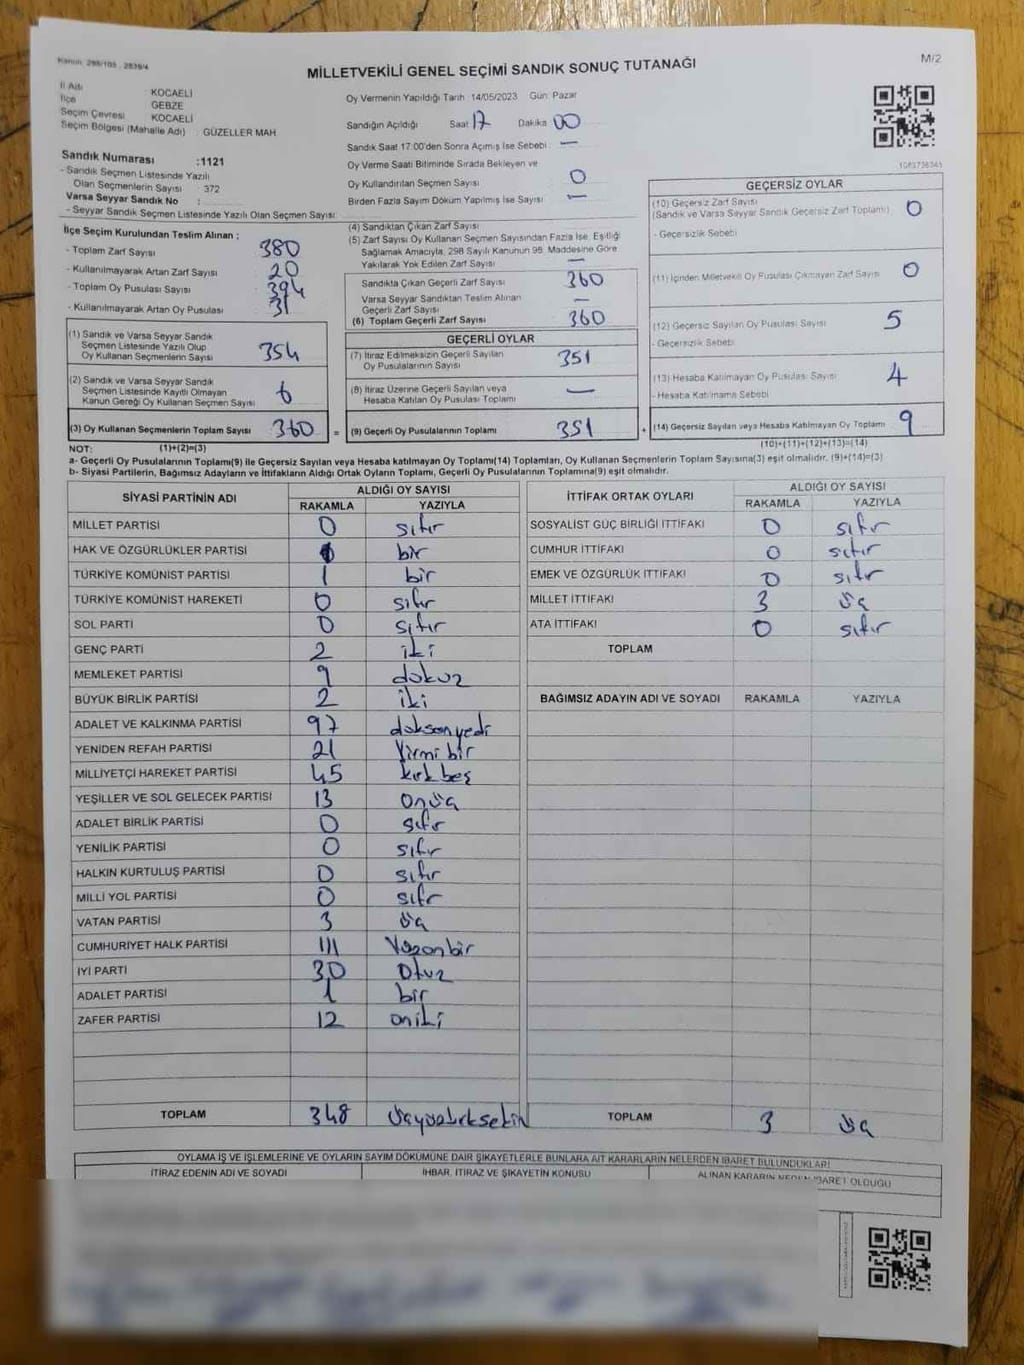 Kanun: 298/105 , 2839/4
M/2
MİLLETVEKİLİ GENEL SEÇİMİ SANDIK SONUÇ TUTANAĞI
İl Adı KOCAELİ
İlçe GEBZE
Seçim Çevresi KOCAELİ
Seçim Bölgesi (Mahalle Adı) : GÜZELLER MAH.
Sandık Numarası :1121
- Sandık Seçmen Listesinde Yazılı
Olan Seçmenlerin Sayısı : 372
Varsa Seyyar Sandık No :
- Seyyar Sandık Seçmen Listesinde Yazılı Olan Seçmen Sayısı:
Oy Vermenin Yapıldığı Tarih :14/05/2023 Gün: Pazar
Sandığın Açıldığı Saat 17 Dakika 00
Sandık Saat 17:00'den Sonra Açılmış İse Sebebi : —
Oy Verme Saati Bitiminde Sırada Bekleyen ve
Oy Kullandırılan Seçmen Sayısı 0
Birden Fazla Sayım Döküm Yapılmış İse Sayısı : —
İlçe Seçim Kurulundan Teslim Alınan :
- Toplam Zarf Sayısı 380
- Kullanılmayarak Artan Zarf Sayısı 20
- Toplam Oy Pusulası Sayısı 394
- Kullanılmayarak Artan Oy Pusulası 31
(1) Sandık ve Varsa Seyyar Sandık
Seçmen Listesinde Yazılı Olup
Oy Kullanan Seçmenlerin Sayısı 354
(2) Sandık ve Varsa Seyyar Sandık
Seçmen Listesinde Kayıtlı Olmayan
Kanun Gereği Oy Kullanan Seçmen Sayısı 6
(3) Oy Kullanan Seçmenlerin Toplam Sayısı 360 =
(4) Sandıktan Çıkan Zarf Sayısı
(5) Zarf Sayısı Oy Kullanan Seçmen Sayısından Fazla İse, Eşitliği
Sağlamak Amacıyla, 298 Sayılı Kanunun 98. Maddesine Göre
Yakılarak Yok Edilen Zarf Sayısı —
Sandıkta Çıkan Geçerli Zarf Sayısı 360
Varsa Seyyar Sandıktan Teslim Alınan
Geçerli Zarf Sayısı —
(6) Toplam Geçerli Zarf Sayısı 360
GEÇERLİ OYLAR
(7) İtiraz Edilmeksizin Geçerli Sayılan
Oy Pusulalarının Sayısı 351
(8) İtiraz Üzerine Geçerli Sayılan veya
Hesaba Katılan Oy Pusulası Toplamı —
(9) Geçerli Oy Pusulalarının Toplamı 351 +
GEÇERSİZ OYLAR
(10) Geçersiz Zarf Sayısı 0
(Sandık ve Varsa Seyyar Sandık Geçersiz Zarf Toplamı)
- Geçersizlik Sebebi
(11) İçinden Milletvekili Oy Pusulası Çıkmayan Zarf Sayısı 0
(12) Geçersiz Sayılan Oy Pusulası Sayısı 5
- Geçersizlik Sebebi
(13) Hesaba Katılmayan Oy Pusulası Sayısı 4
- Hesaba Katılmama Sebebi
(14) Geçersiz Sayılan veya Hesaba Katılmayan Oy Toplamı 9
NOT: (1)+(2)=(3) (10)+(11)+(12)+(13)=(14)
a- Geçerli Oy Pusulalarının Toplamı(9) ile Geçersiz Sayılan veya Hesaba katılmayan Oy Toplamı(14) Toplamları, Oy Kullanan Seçmenlerin Toplam Sayısına(3) eşit olmalıdır. (9)+(14)=(3)
b- Siyasi Partilerin, Bağımsız Adayların ve İttifakların Aldığı Ortak Oyların Toplamı, Geçerli Oy Pusulalarının Toplamına(9) eşit olmalıdır.
SİYASİ PARTİNİN ADI ALDIĞI OY SAYISI
RAKAMLA YAZIYLA
MİLLET PARTİSİ 0 sıfır
HAK VE ÖZGÜRLÜKLER PARTİSİ bir
TÜRKİYE KOMÜNİST PARTİSİ 1 bir
TÜRKİYE KOMÜNİST HAREKETİ 0 sıfır
SOL PARTİ 0 sıfır
GENÇ PARTİ 2 iki
MEMLEKET PARTİSİ 9 dokuz
BÜYÜK BİRLİK PARTİSİ 2 iki
ADALET VE KALKINMA PARTİSİ 97 doksanyedi
YENİDEN REFAH PARTİSİ 21 Yirmi bir
MİLLİYETÇİ HAREKET PARTİSİ 45 kırkbeş
YEŞİLLER VE SOL GELECEK PARTİSİ 13 onüç
ADALET BİRLİK PARTİSİ 0 sıfır
YENİLİK PARTİSİ 0 sıfır
HALKIN KURTULUŞ PARTİSİ 0 sıfır
MİLLİ YOL PARTİSİ 0 sıfır
VATAN PARTİSİ 3 üç
CUMHURİYET HALK PARTİSİ 111 Yüzonbir
İYİ PARTİ 30 Otuz
ADALET PARTİSİ 1 bir
ZAFER PARTİSİ 12 oniki
TOPLAM 348 Üçyüzkırksekiz
İTTİFAK ORTAK OYLARI ALDIĞI OY SAYISI
RAKAMLA YAZIYLA
SOSYALİST GÜÇ BİRLİĞİ İTTİFAKI 0 sıfır
CUMHUR İTTİFAKI 0 sıfır
EMEK VE ÖZGÜRLÜK İTTİFAKI 0 sıfır
MİLLET İTTİFAKI 3 üç
ATA İTTİFAKI 0 sıfır
TOPLAM
BAĞIMSIZ ADAYIN ADI VE SOYADI RAKAMLA YAZIYLA
TOPLAM 3 üç
OYLAMA İŞ VE İŞLEMLERİNE VE OYLARIN SAYIM DÖKÜMÜNE DAİR ŞİKAYETLERLE BUNLARA AİT KARARLARIN NELERDEN İBARET BULUNDUKLARI
İTİRAZ EDENİN ADI VE SOYADI İHBAR, İTİRAZ VE ŞİKAYETİN KONUSU ALINAN KARARIN NEDEN İBARET OLDUĞU